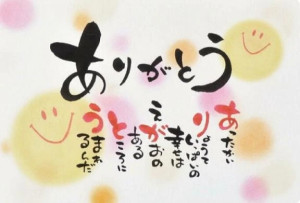 ありがとう
あったかい
りょうて
いっぱいの
幸せは
えがおの
ある
ところに
うまれるんだ